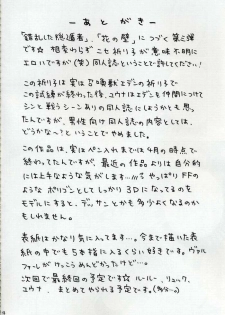 ーあとがきー
「錯乱した総選者」、「花の壁」につづく第三弾
です☆ 相変わらずニセ祈り子が意味不明に
エロいですが(笑) 同人誌ということで許してください!
この祈り子は実は召喚獣エデンの祈り子で
この試練が終わった後、ユウナはエデンを仲間につけて
シンと戦うシーンありの同人誌にしようかとも思っ
たんですが、男性向け同人誌の内容としては、
どうかな〜?ということでやめました。
この作品は、実はペン入れまでは4月の時点で
終わってたんですが、最近の作品よりは自分的
には上手なような気がします…!!! やっぱりFFの
ような ポリゴンとしてしっかり3Dになってるのを
モデルにすると、デッサンとか多少よくなるのか
もしれません。
表紙はかなり気に入ってます…。今まで描いた表
紙の中でも5本指に入るくらいの出来です。ヴァル
ファーレがけっこうめんどかったけど…。
次回で最終回の予定です☆ ルールー、リュック、
ユウナ、まとめてやられる予定です。(多分…)